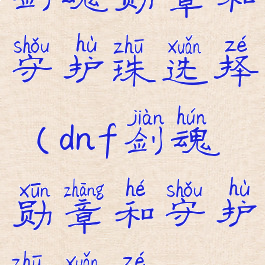 剑魂勋章和
shǒu hù zhū xuǎn zé
守护珠选择
jiàn hún
（dnf剑魂
xūn zhāng hé shǒu hù
勋章和守护
zhū xuǎn zé